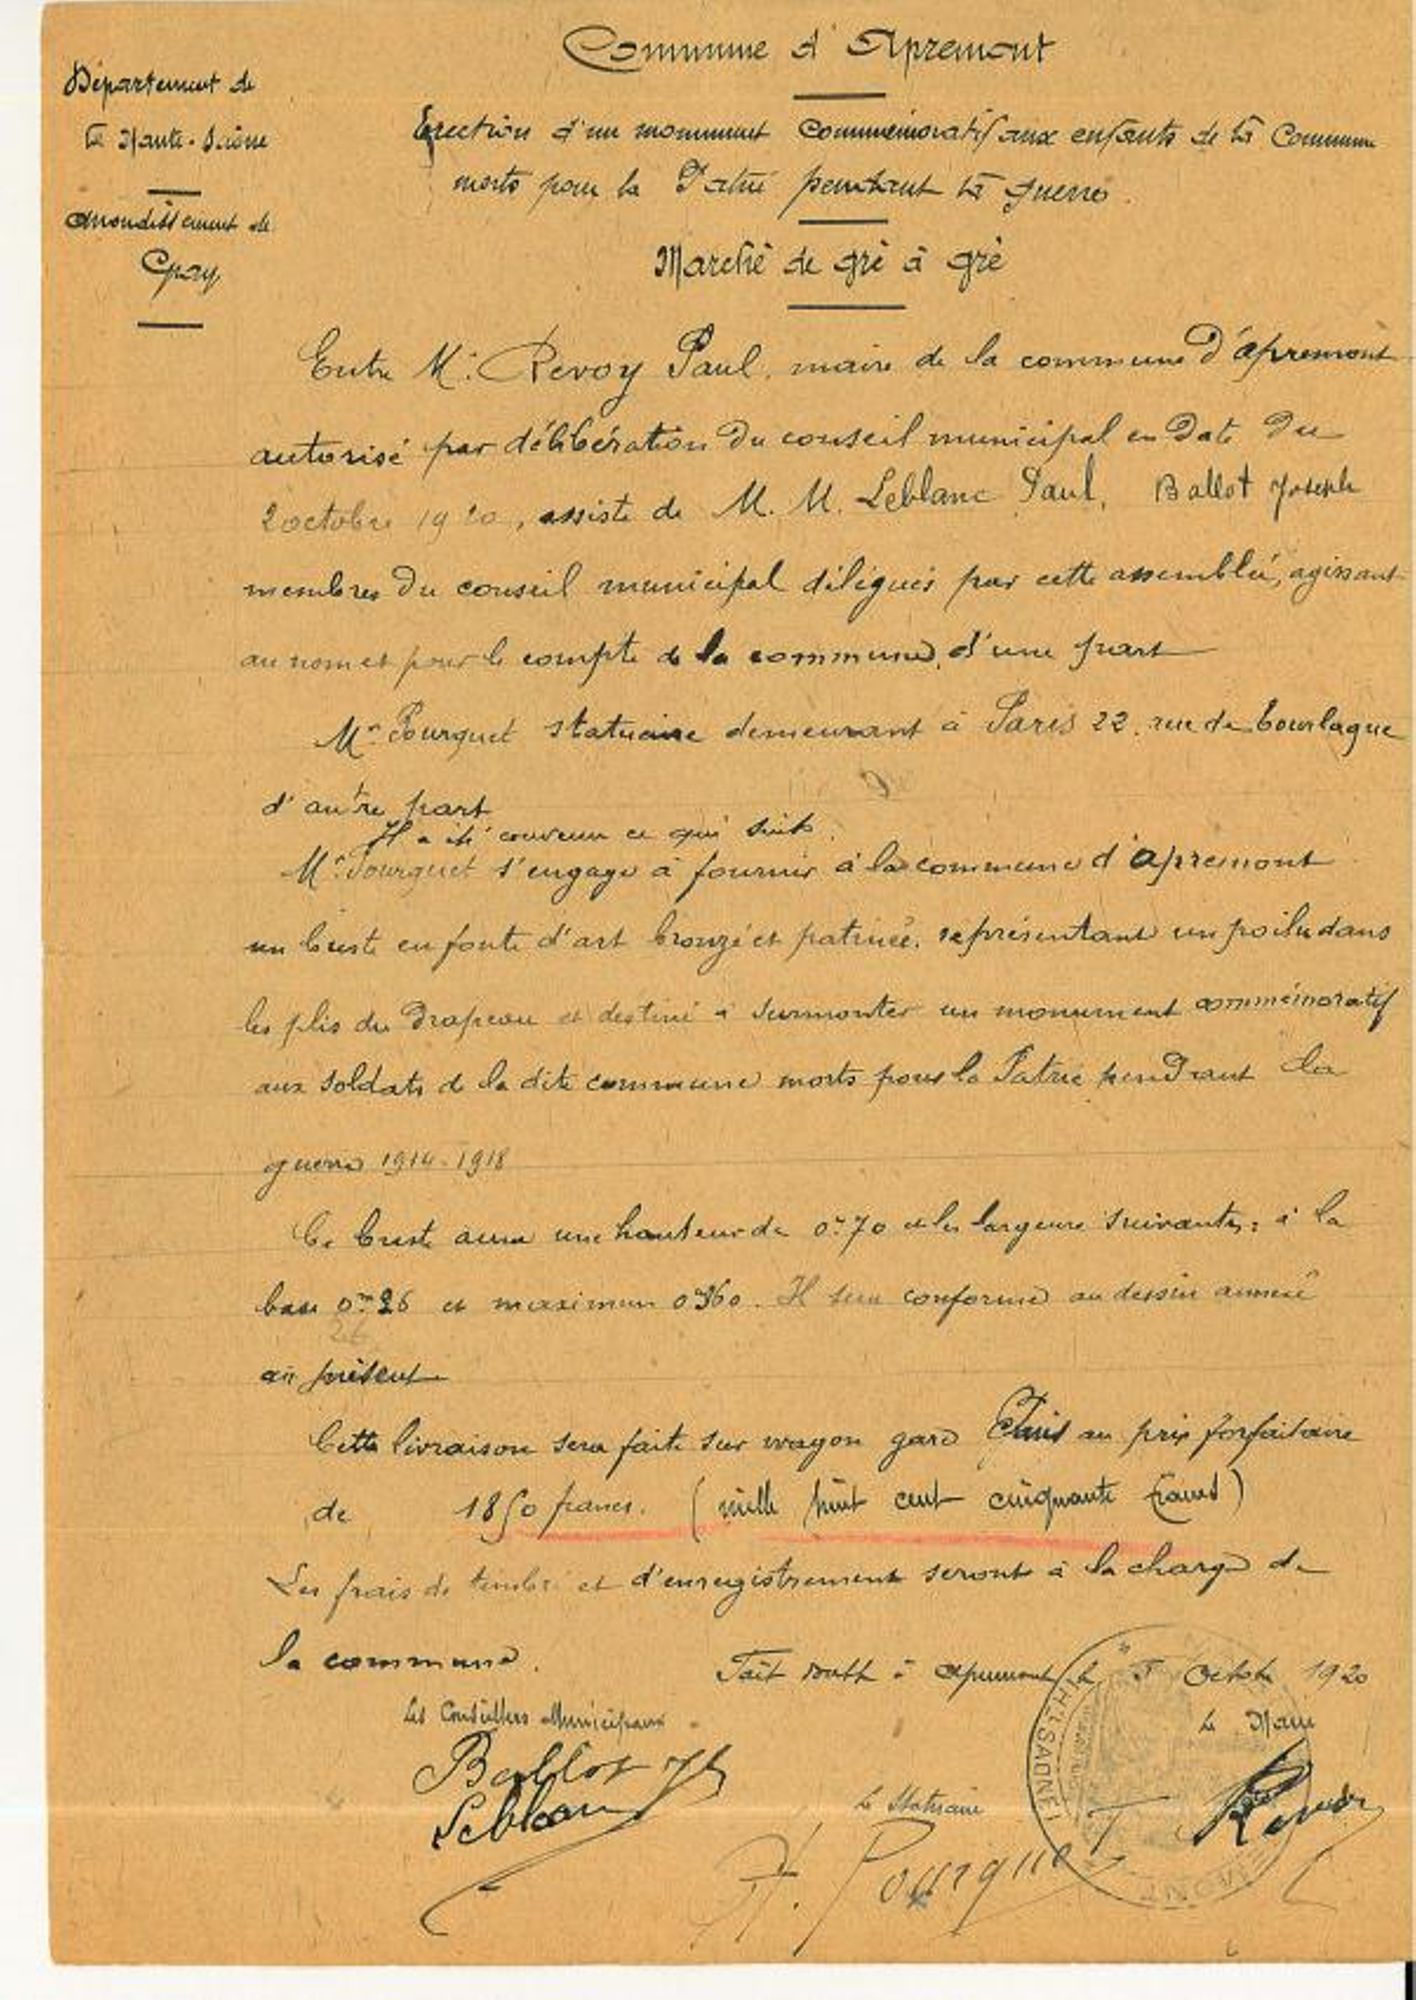 Commune d'Apremont
Département de
la Haute-Saône
Arrondissement de
Gray
Erection d'un monument commémoratif aux enfants de la Commune
morts pour la Patrie pendant la guerre.
Marché de gré à gré
Entre Mr. Revoy Paul, maire de la commune d'Apremont
autorisé par délibération du conseil municipal en date du
2 octobre 1920, assisté de M. M. Leblanc Paul, Ballot Joseph
membres du conseil municipal délégués par cette assemblée, agissant
au nom et pour le compte de la commune, d'une part
Mr Pourquet statuaire demeurant à Paris 22, rue de Tourlaque
d'autre part
Il a été convenu ce qui suit.
Mr Pourquet s'engage à fournir à la commune d'Apremont
un buste en fonte d'art bronzé et patinée, représentant un poilu dans
les plis du drapeau et destiné à surmonter un monument commémoratif
aux soldats de la dite commune morts pour la Patrie pendant la
guerre 1914-1918
Ce buste aura une hauteur de 0m70 et les largeurs suivantes: à la
base 0m26 et maximum 0m60. Il sera conforme au dessin annexé
26
au présent
Cette livraison sera faite sur wagon gare au prix forfaitaire
de 1850 francs. (mille huit cent cinquante francs)
Les frais de timbre et d'enregistrement seront à la charge de
la commune.
Fait double à Apremont, le 5 Octobre 1920
Les Conseillers Municipaux
Le Maire
Ballot
Leblanc
Le Statuaire
H. Pourquet
Revoy
(HTE SAONE)